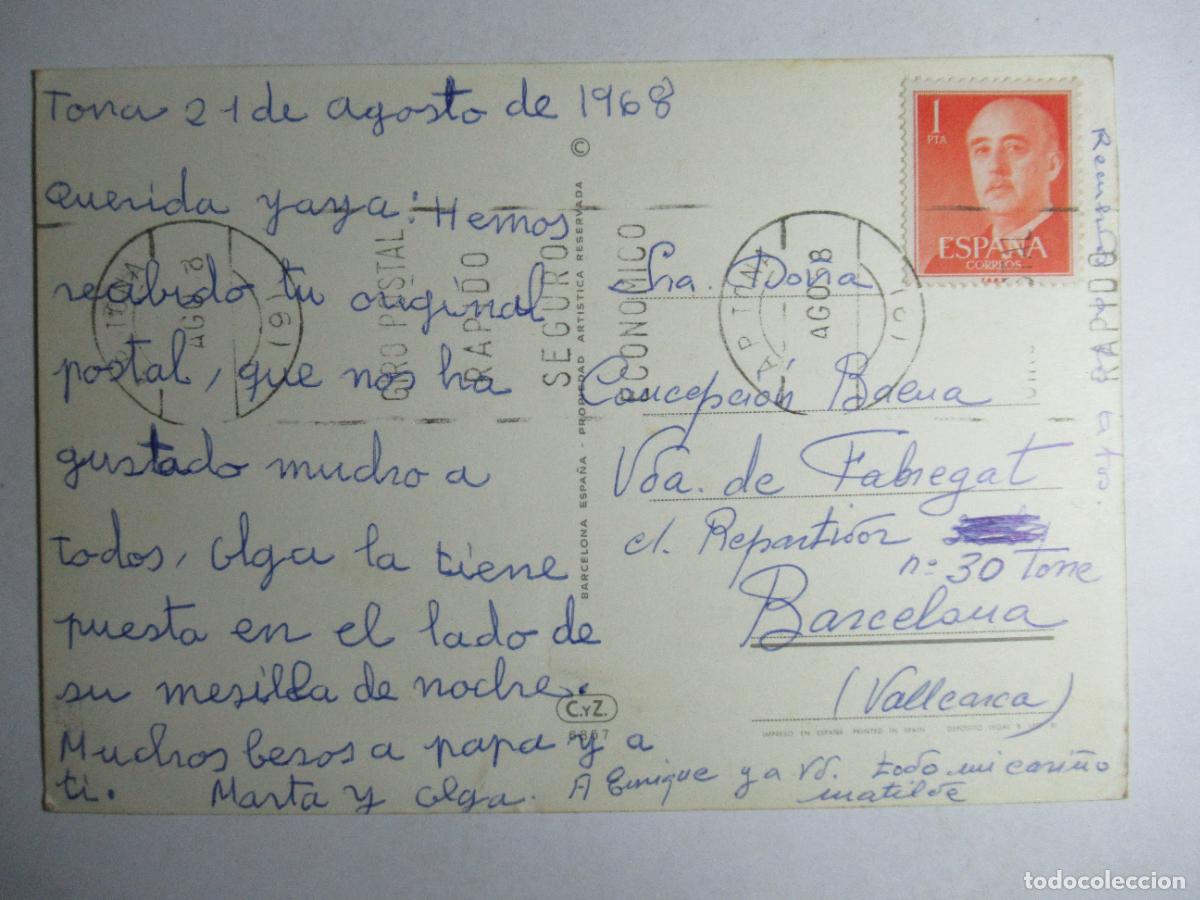 Tona 21 de agosto de 1968
Querida yaya: Hemos
recibido tu original
postal, que nos ha
gustado mucho a
todos, Olga la tiene
puesta en el lado de
su mesilla de noche.
Muchos besos a papa y a
ti. Marta y Olga.
A Enrique y a Vd. todo mi cariño
Matilde
Sra. Doña
Concepción Baena
Vda. de Fabregat
c/. Repartidor
nº 30 Torre
Barcelona
(Vallcarca)
1
PTA
ESPAÑA
CORREOS
GIRO POSTAL
RAPIDO
SEGURO
ECONOMICO
TONA
AGO 68
TONA
AGO 68
RAPIDO
©
BARCELONA ESPAÑA - PROPIEDAD ARTISTICA RESERVADA
C.YZ.
8857
IMPRESO EN ESPAÑA PRINTED IN SPAIN DEPOSITO LEGAL B.
todocoleccion.net